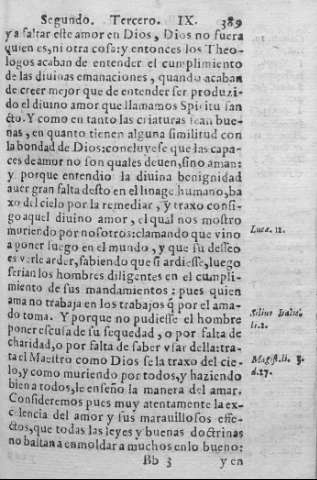 Segundo. Tercero. IX. 389
y a faltar este amor en Dios, Dios no fuera
quien es, ni otra cosa: y entonces los Theo-
logos acaban de entender el cumplimiento
de las diuinas emanaciones, quando acaban
de creer mejor que de entender ser produzi-
do el diuino amor que llamamos Spiritu san
cto. Y como en tanto las criaturas sean bue-
nas, en quanto tienen alguna similitud con
la bondad de Dios: concluyese que las capa-
ces de amor no son quales deuen, sino aman:
y porque entendio la diuina benignidad
auer gran falta desto en el linage humano, ba
xo del cielo por la remediar, y traxo consi-
go aquel diuino amor, el qual nos mostro
muriendo por nosotros: clamando que vino
Lucæ. 12.
a poner fuego en el mundo, y que su desseo
es verle arder, sabiendo que si ardiesse, luego
serian los hombres diligentes en el cumpli-
miento de sus mandamientos: pues quien
ama no trabaja en los trabajos q̃ por el ama-
do toma. Y porque no pudiesse el hombre
Silius Italic.
poner escusa de su sequedad, o por falta de
li. 2.
charidad, o por falta de saber vsar della: tra-
ta el Maestro como Dios se la traxo del cie-
Magist. li. 3.
lo, y como muriendo por todos, y haziendo
d. 27.
bien a todos, le enseño la manera del amar.
Consideremos pues muy atentamente la ex-
celencia del amor y sus marauillosos effe-
ctos, que todas las leyes y buenas doctrinas
no bastan a enmoldar a muchos en lo bueno:
Bb 3 y en